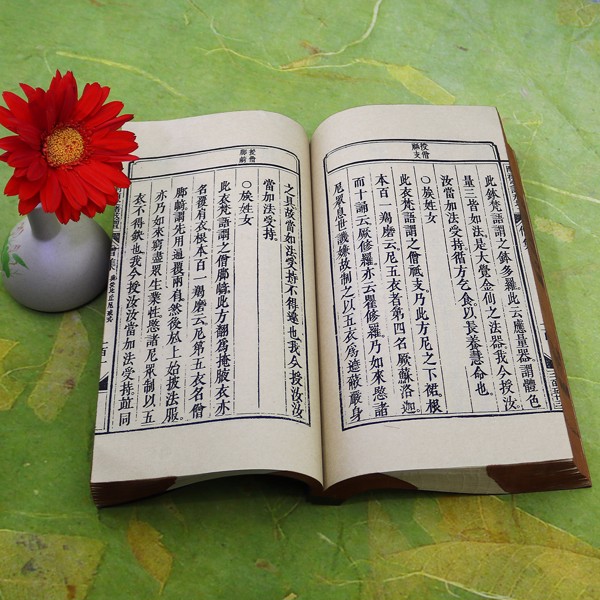 授僧
祇支
此鉢梵語謂之鉢多羅。此云應量器。謂體色
量三皆如法。是大覺金仙之法器。我今授汝。
汝當如法受持。循方乞食。以長養慧命也。
○族姓女
此衣梵語謂之僧祇支。乃此方尼之下裙。根
本百一羯磨云。尼五衣者。第四名厥蘇洛迦。
而十誦云厥修羅。亦云瞿修羅。乃如來愍諸
尼眾。息世譏嫌。故制之。以五衣為遮蔽嚴身
授僧
廊㡓
之具。故當如法受持。不得違也。我今授汝。汝
當如法受持。
○族姓女
此衣梵語謂之僧廊㡓。此方翻為掩腋衣。亦
名覆肩衣。根本百一羯磨云。尼第五衣名僧
廊㡓。謂先用遍覆兩肩。然後於上始披法服。
亦乃如來窮盡眾生業性。愍諸尼眾。制以五
衣。不得缺也。我今授汝。汝當如法受持。並同